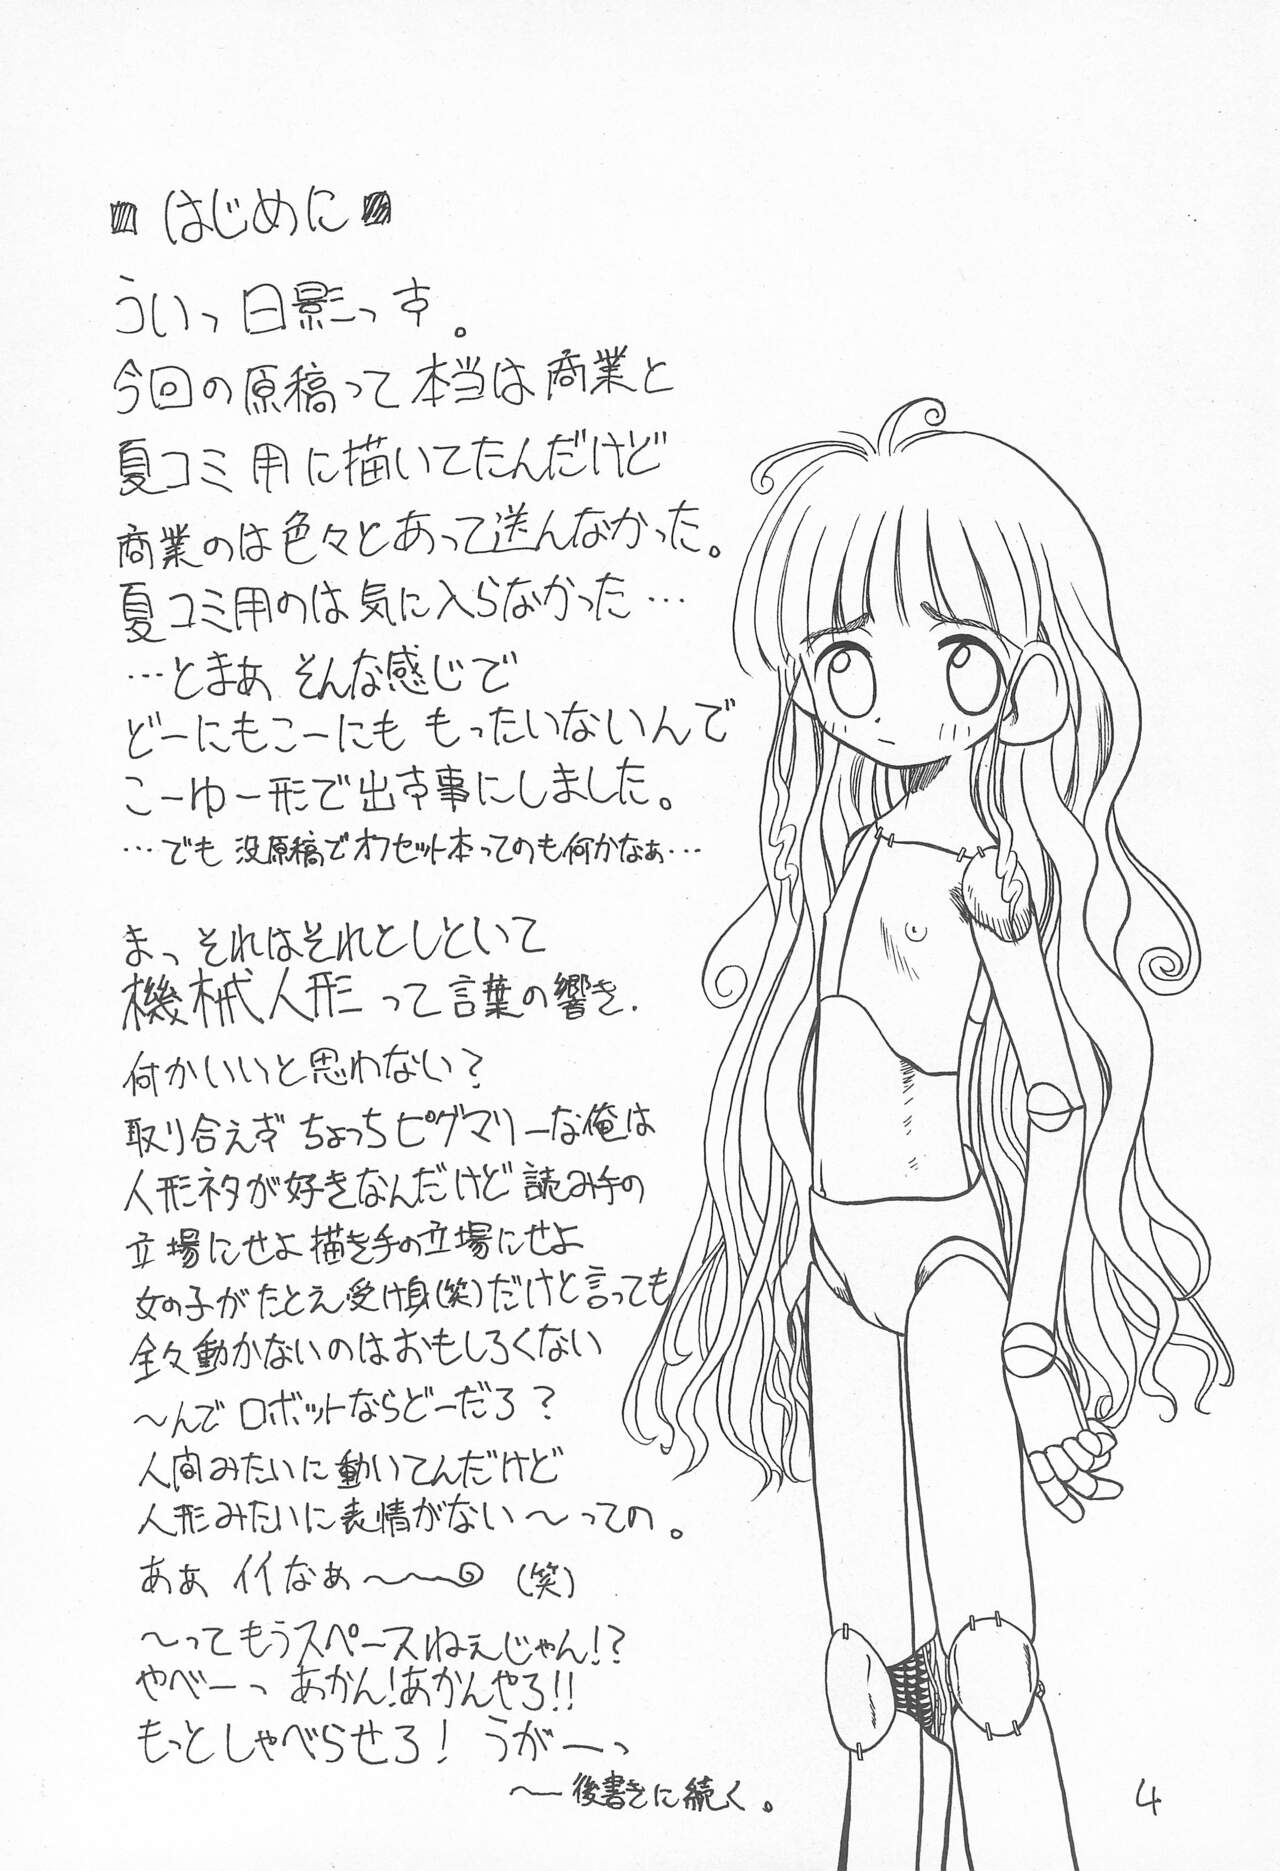 はじめに
ういっ日影っす。
今回の原稿って本当は商業と
夏コミ用に描いてたんだけど
商業のは色々とあって送んなかった。
夏コミ用のは気に入らなかった…
…とまぁ そんな感じで
どーにもこーにも もったいないんで
こーゆー形で出す事にしました。
…でも 没原稿でオフセット本ってのも何かなぁ…
まっそれはそれとしといて
機械人形って言葉の響き、
何かいいと思わない？
取り合えず ちょっちピグマリーな俺は
人形ネタが好きなんだけど 読み手の
立場にせよ描き手の立場にせよ
女の子がたとえ受け身(笑)だけと言っても
全々動かないのはおもしろくない
〜んで ロボットならどーだろ？
人間みたいに動いてんだけど
人形みたいに表情がない〜っての。
あぁ イイなぁ〜 (笑)
〜ってもうスペースねぇじゃん!?
やべーっ あかん!あかんやろ!!
もっとしゃべらせろ! うがーっ
〜後書きに続く。
4